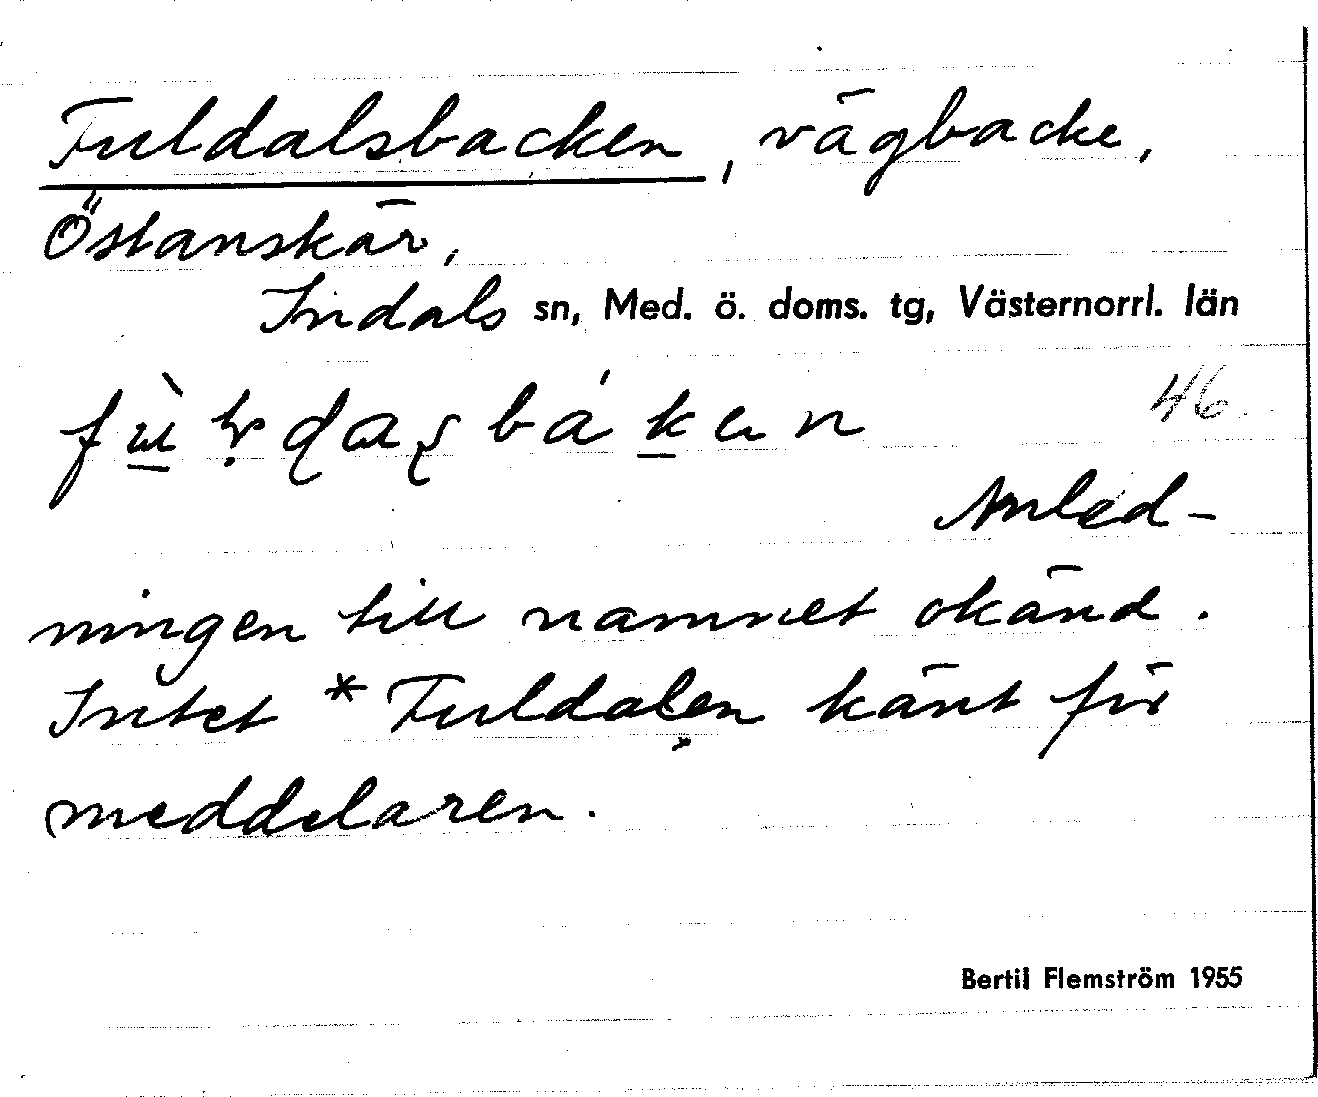 Fuldalsbacken, vägbacke,
Östanskär,
Indals sn, Med. ö. doms. tg, Västernorrl. län
46
Anled-
ningen till namnet okänd.
Intet *Fuldalen känt för
meddelaren.
Bertil Flemström 1955